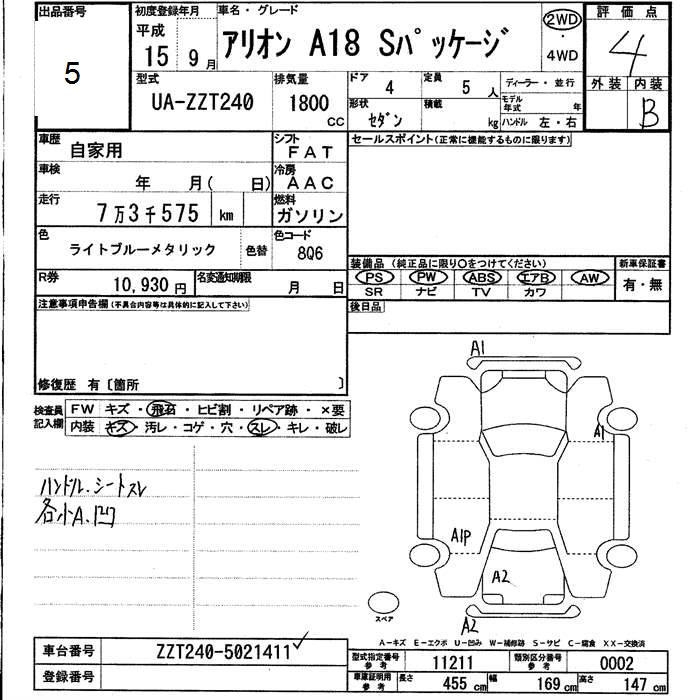 出品番号 初度登録年月 車名・グレード 評価点
5 平成 15年 9月 アリオン A18 Sパッケージ 2WD・4WD 4
型式 排気量 ドア 定員 ディーラー・並行 外装 内装
UA-ZZT240 1800cc 4 5人 モデル年式 年 B
形状 積載
セダン kg ハンドル 左・右
車歴 シフト セールスポイント(正常に機能するものに限ります)
自家用 FAT
車検 冷房
年 月( 日) AAC
走行 燃料
7万3千575 km ガソリン
色 色コード
ライトブルーメタリック 色替 8Q6
装備品(純正品に限り〇をつけてください) 新車保証書
PS PW ABS エアB AW 有・無
SR ナビ TV カワ
R券 名変通知期限
10,930円 月 日
後日品
注意事項申告欄(不具合内容等は具体的に記入して下さい)
修復歴 有〔箇所 〕
検査員記入欄 FW キズ・飛石・ヒビ割・リペア跡・×要
内装 キズ・汚レ・コゲ・穴・スレ・キレ・破レ
ハンドル.シートスレ
各小A.凹
A1
A1
A1P
A2
A2
スペア
A-キズ E-エクボ U-凹み W-補修跡 S-サビ C-腐食 XX-交換済
車台番号 ZZT240-5021411
登録番号
型式指定番号 参考 11211 類別区分番号 参考 0002
車庫証明用 参考 長さ 455cm 幅 169cm 高さ 147cm